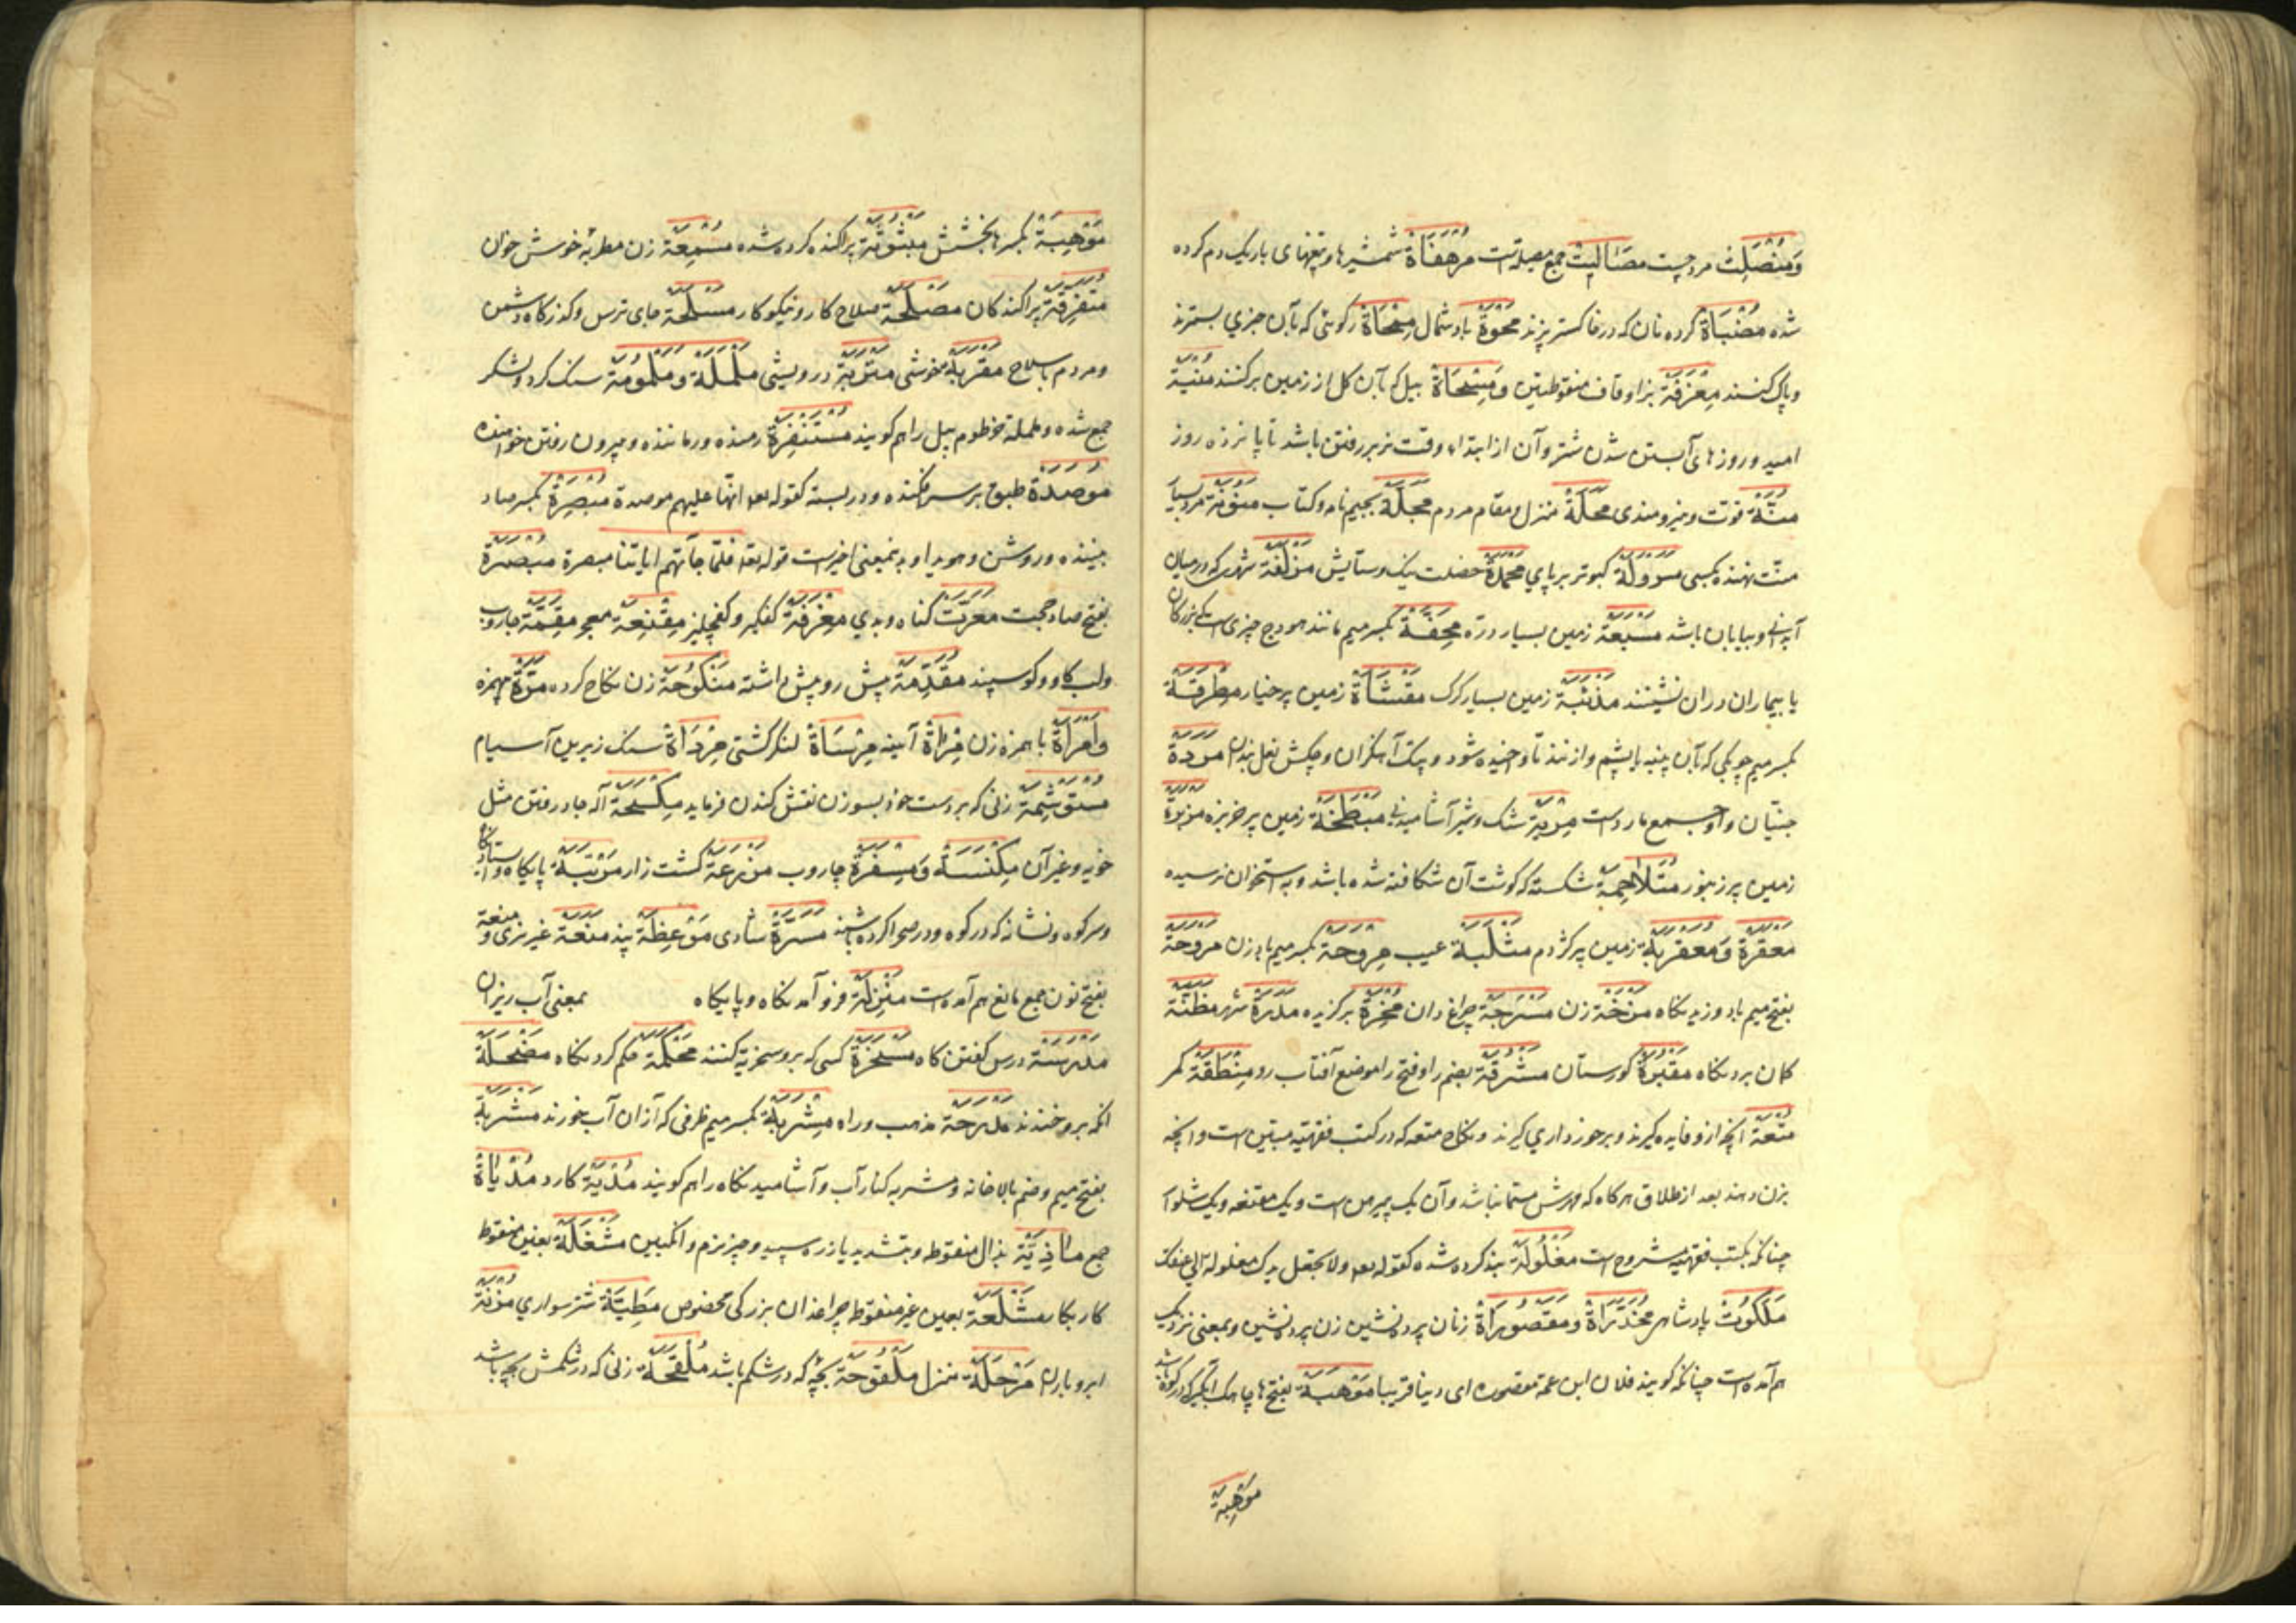 وَمُنْصَلِتْ مرد چست مَصَالِیتْ جمع مصلات است مُرْهَفَاةْ شمشیرها و تیغهای باریک دم کرده
شده مُضْبَاةْ کرده نان که در خاکستر پزند مَحْوَةْ باد شمال مِمْحَاةْ رکوئی که بآن چیزی بسترند
و پاک کنند مِغْزَفَةْ بزا و قاف منقوطتین وَ مِسْحَاةْ بیل که بآن کل از زمین برکنند مُنْیَةْ
امید و روزهای آبستن شدن شتر و آن از ابتداء وقت نر بر رفتن باشد تا پانزده روز
مُنَّةْ قوت و نیرومندی مَحَلَّةْ منزل و مقام مردم مَجَلَّةْ بجیم نامه و کتاب مَنُونَةْ مرد بسیار
منّت نهنده بکسی مُسَرْوَلَةْ کبوتر بر پای مَحْمَدَةْ خصلت نیک و ستایش مَزْلَفَةْ شهری که در میان
آبدانی و بیابان باشد مَسْبَعَةْ زمین بسیار دره مِحَفَّةْ بکسر میم مانند هودج چیزی است که بزرکان
یا بیماران دران نشینند مَذْئَبَةْ زمین بسیار کرک مَقْثَاةْ زمین پر خیار مِطْرَقَةْ
بکسر میم چوبکی که بآن پنبه یا پشم وا زنند تا واخیده شود و پتک آهنکران و چکش نعل بندان مَرَدَةْ
جنیان و آوجمع مارد است مِرْیَةْ شک و شیر آشامیدنی مَبْطَخَةْ زمین پر خربزه مَزْبَرَةْ
زمین پر زنبور مُتَلَاحِمَةْ شکسته که کوشت آن شکافته شده باشد و به استخوان نرسیده
مَعْقَرَةْ وَ مُعَقْرَبَةْ زمین پر کژدم مَثْلَبَةْ عیب مِرْوَحَةْ بکسر میم بادزن مَرْوَحَةْ
بفتح میم باد وزیدنکاه مَزَخَّةْ زن مَسْرَجَةْ چراغ دان مُخْیَرَةْ برکزیده مَدَرَةْ شهر مَظِنَّةْ
کمان بردنکاه مَقْبُرَةْ کورستان مَشْرُقَةْ بضم را و فتح را موضع آفتاب رو مِنْطَقَةْ کمر
مُتْعَةْ آنچه ازو فایده کیرند و برخورداری کیرند و نکاح متعه که در کتب فقهیّه مبیّن است و آنچه
بزن دهند بعد از طلاق هرکاه که مهرش مسمّا نباشد و آن یک پیرهن است و یک مقنعه و یک شلوار
چنانکه بکتب فقهیه مشروح است مَغْلُولَةْ بند کرده شده کقوله تعالی ولا تجعل یدک مغلولة الی عنقک
مَلَکُوتْ پادشاهی مُخَدَّرَاةْ و مَقْصُورَاةْ زنان پرده نشین زن پرده نشین و بمعنی نزدیک
هم آمده است چنانکه کویند فلان ابن عمّه مقصوره ای دنیا قریبا مَوْهَبَةْ بفتح ها چاهک آبگیر که در کوه باشد
مَوْهِبَةْ
مَوْهِبَةْ بکسر ها بخشش مَبْثُوثَةْ پراکنده کرده شده مُسْمِعَةْ زن مطربه خوش خوان
مُتَفَرِّقَةْ پراکندکان مَصْلَحَةْ صلاح کار و نیکو کار مَسْلَحَةْ جای ترس و کذرکاه دشمن
و مردم با سلاح مَقْرَبَةْ خوشی مَتْرَبَةْ درویشی مُلَمْلَمَةْ وَ مَلْمُومَةْ سنک کرد و لشکر
جمع شده و ململمة خرطوم پیل را هم کویند مُسْتَنْفِرَةْ رمنده و رماننده و بیرون رفتن خواهنده
مُوصَدَةْ طبق بر سر فکنده و در بسته کقوله تعالی انّها علیهم موصدة مُبْصِرَةْ بکسر صاد
بیننده و روشن و هویدا و بدینمعنی اخیر است قوله تعالی فلمّا جآتهم ایاتنا مبصرة مُبْصَرَةْ
بفتح صاد حجت مَعَرَّتْ کناه و بدی مِغْرَفَةْ کفکیر و کفچلیز مِقْنَعَةْ معجر مِقَمَّةْ جاروب
و لب کاو و کوسپند مُقَدِّمَةْ پیش رو و پیش داشته مَنْکُوحَةْ زن نکاح کرده مَرَّةْ بهمزه
وَامْرَأَةْ با همزه زن مِرْآةْ آینه مِرْسَاةْ لنکر کشتی مِرْدَاةْ سنک زیرین آسیام
مُسْتَوْشِمَةْ زنی که بر دست خود بسوزن نقش کندن فرماید مِکْسَحَةْ آله جا رفتن مثل
خویه و غیر آن مِکْنَسَةْ وَ مِسْفَرَةْ جاروب مَزْرَعَةْ کشت زار مَرْتَبَةْ پایکاه و استادنکاه
و سر کوه و نشانه که در کوه و در صحرا کرده باشند مَسَرَّةْ شادی مَوْعِظَةْ پند مَنَعَةْ غیر نری و منعة
بفتح نون جمع مانع هم آمده است مَنْزِلَةْ فرو آمدنکاه و پایکاه بمعنی آب ریزان
مَدْرَسَةْ درس کفتن کاه مَسْخَرَةْ کسی که برو سخریّه کنند مَحْکَمَةْ حکم کردنکاه مَضْحَکَةْ
انکه برو خندند مَدْرَجَةْ مذهب و راه مِشْرَبَةْ بکسر میم ظرفی که ازان آب خورند مَشْرَبَةْ
بفتح میم و ضم بالاخانه و مشربه کنار آب و آشامیدنکاه را هم کویند مُدْیَةْ کارد مُدْیَاةْ
جمع مَاذِیَّةْ بذال منقوطه و بتشدید یا زره سپید و چیز نرم و انکبین مَشْغَلَةْ بغین منقوط
کار بکار مَشْعَلَةْ بعین غیر منقوط چراغدان بزرکی مخصوص مَطِیَّةْ شتر سواری مُزْنَةْ
ابر و باران مَرْحَلَةْ منزل مَلْقُوحَةْ بچه که در شکم باشد مُلْقَحَةْ زنی که در شکمش بچه باشد